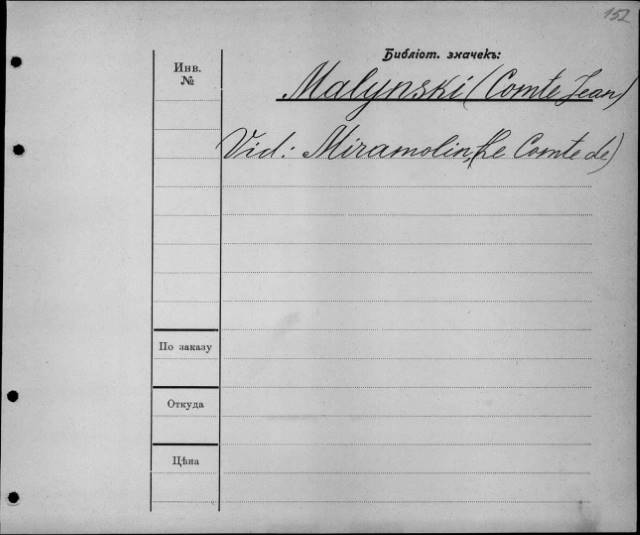 152
Библіот. значекъ:
Инв.
№
Malynski (Comte Jean)
Vid: Miramolin, (Le Comte de)
По заказу
Откуда
Цѣна